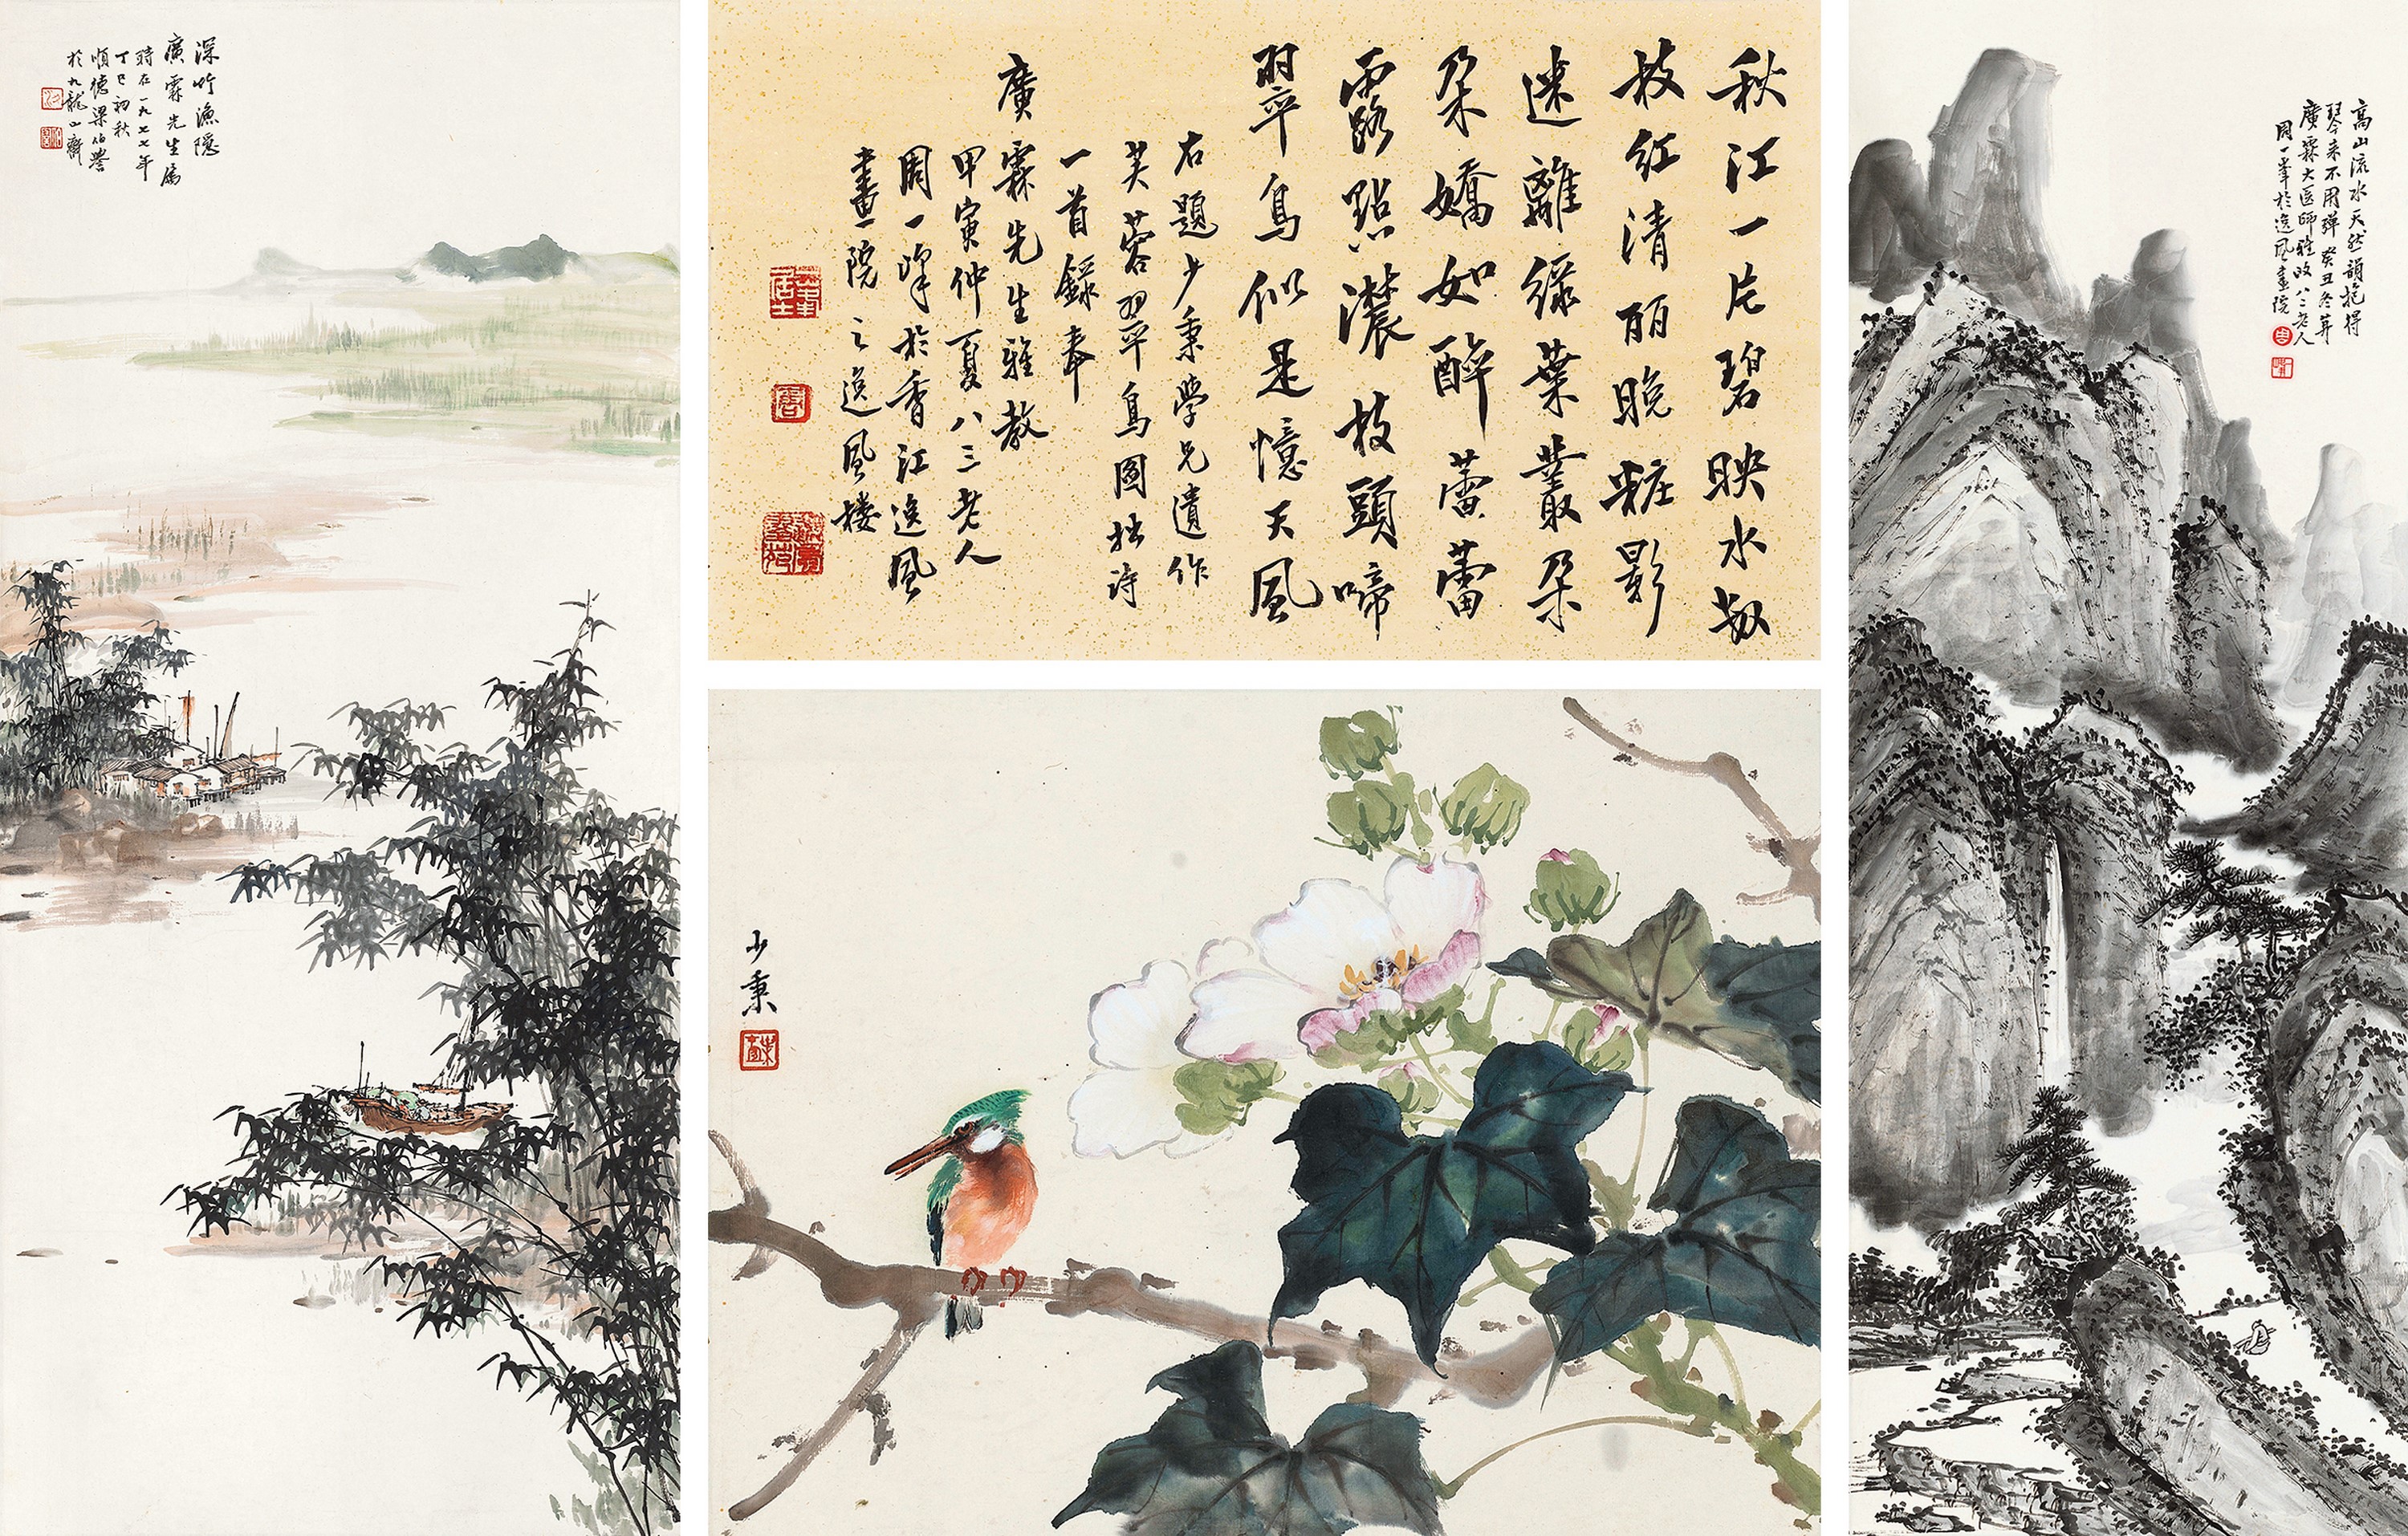 深竹漁隱
廣霖先生屬
時在一九七七年
丁巳初秋
順德梁伯譽
於九龍山齋
秋江一片碧映水數
枝紅清丽晚粧影
迷離綠葉叢朶
朶嬌如醉蕾蕾
露點濃枝頭啼
翠鳥似是憶天風
右題少秉學兄遺作
芙蓉翠鳥圖拙诗
一首錄奉
廣霖先生雅教
甲寅仲夏八三老人
周一峰於香江逸風
畫院之逸風楼
少秉
高山流水天然韻抱得
琴来不用彈癸丑冬并
廣霖大医師雅政八二老人
周一峯於逸風畫院